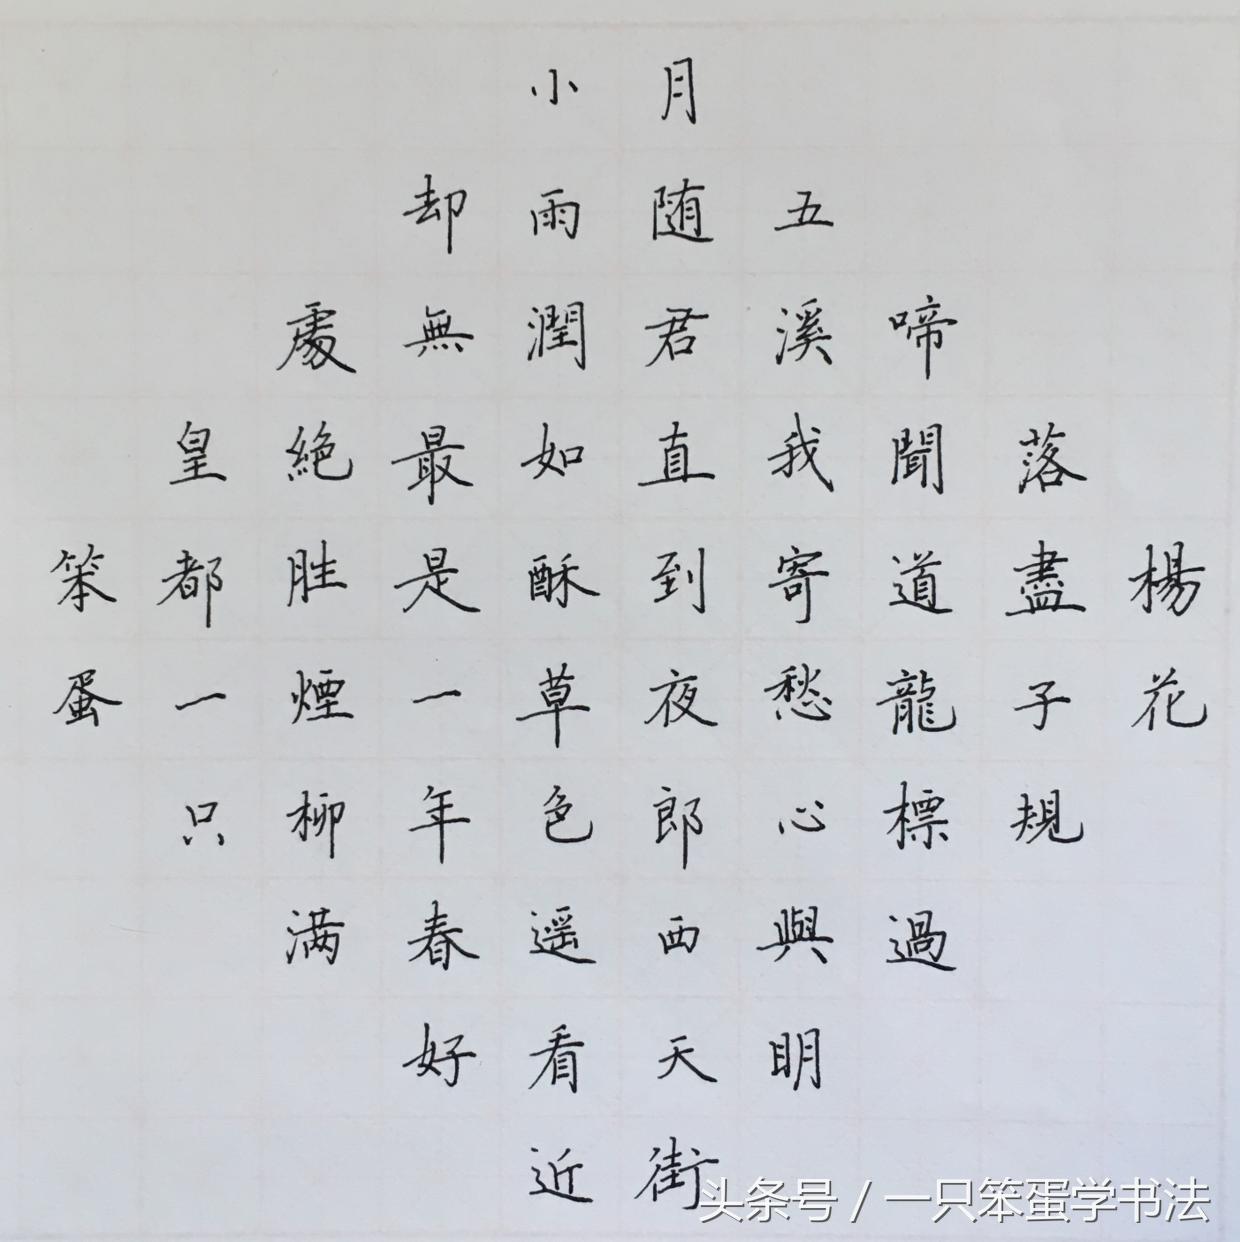 楊花
落盡子規
啼聞道龍標過
五溪我寄愁心與明
月随君直到夜郎西天街
小雨潤如酥草色遥看近
却無最是一年春好
處絶胜煙柳满
皇都一只
笨蛋
头条号 / 一只笨蛋学书法